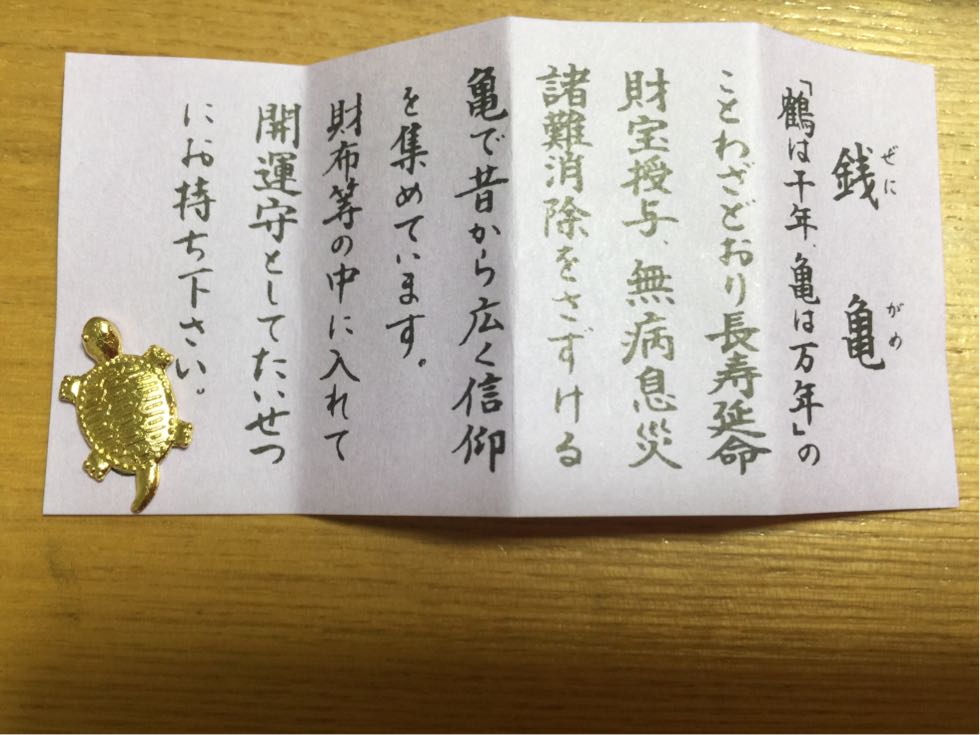 銭亀
ぜにがめ
「鶴は千年、亀は万年」の
ことわざどおり長寿延命
財宝授与、無病息災
諸難消除をさずける
亀で昔から広く信仰
を集めています。
財布等の中に入れて
開運守としてたいせつ
にお持ち下さい。